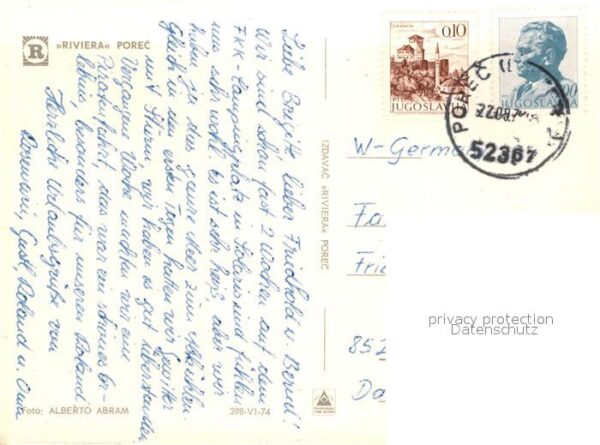 »RIVIERA« POREČ
R
Liebe Brigitte, lieber Friedhold u. Bernd!
Wir sind schon fast 2 Wochen auf dem
FKK-Campingplatz in Solaris und fühlen
uns sehr wohl. Es ist sehr heiß, aber wir
haben ja das ganze Meer zum Abkühlen.
Gleich in den ersten Tagen hatten wir Gewitter
mit Sturm, wir haben es gut überstanden.
Vergangene Woche machten wir eine
Piratenfahrt, das war ein schönes Er-
lebnis besonders für unseren Roland
Herzliche Urlaubsgrüße von
Rosemarie, Gustl, Roland u. Oma
Foto: ALBERTO ABRAM
IZDAVAČ »RIVIERA« POREČ
398-VI-74
GRADAČAC
0,10
JUGOSLAVIJA
JUGOSLAVIJA
POREČ
52367
W-Germa
Fa
Frie
852
Da
privacy protection
Datenschutz